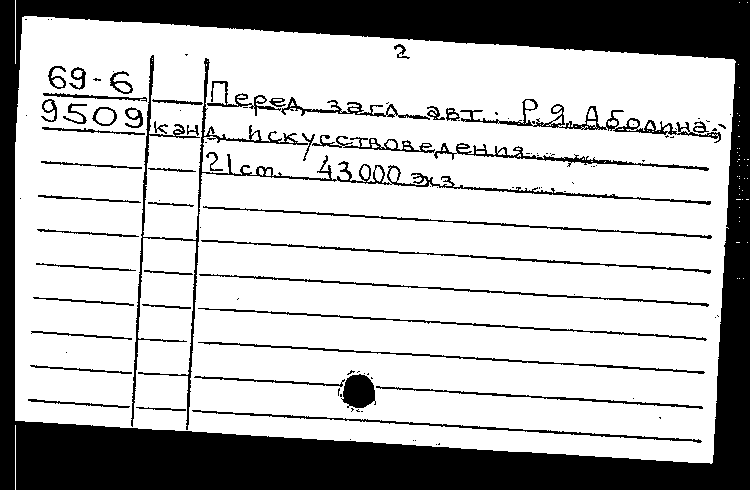 2
69-6
Перед загл. авт.: Р.Я. Аболина,
9509
канд. искусствоведения.
21 см. 43000 экз.